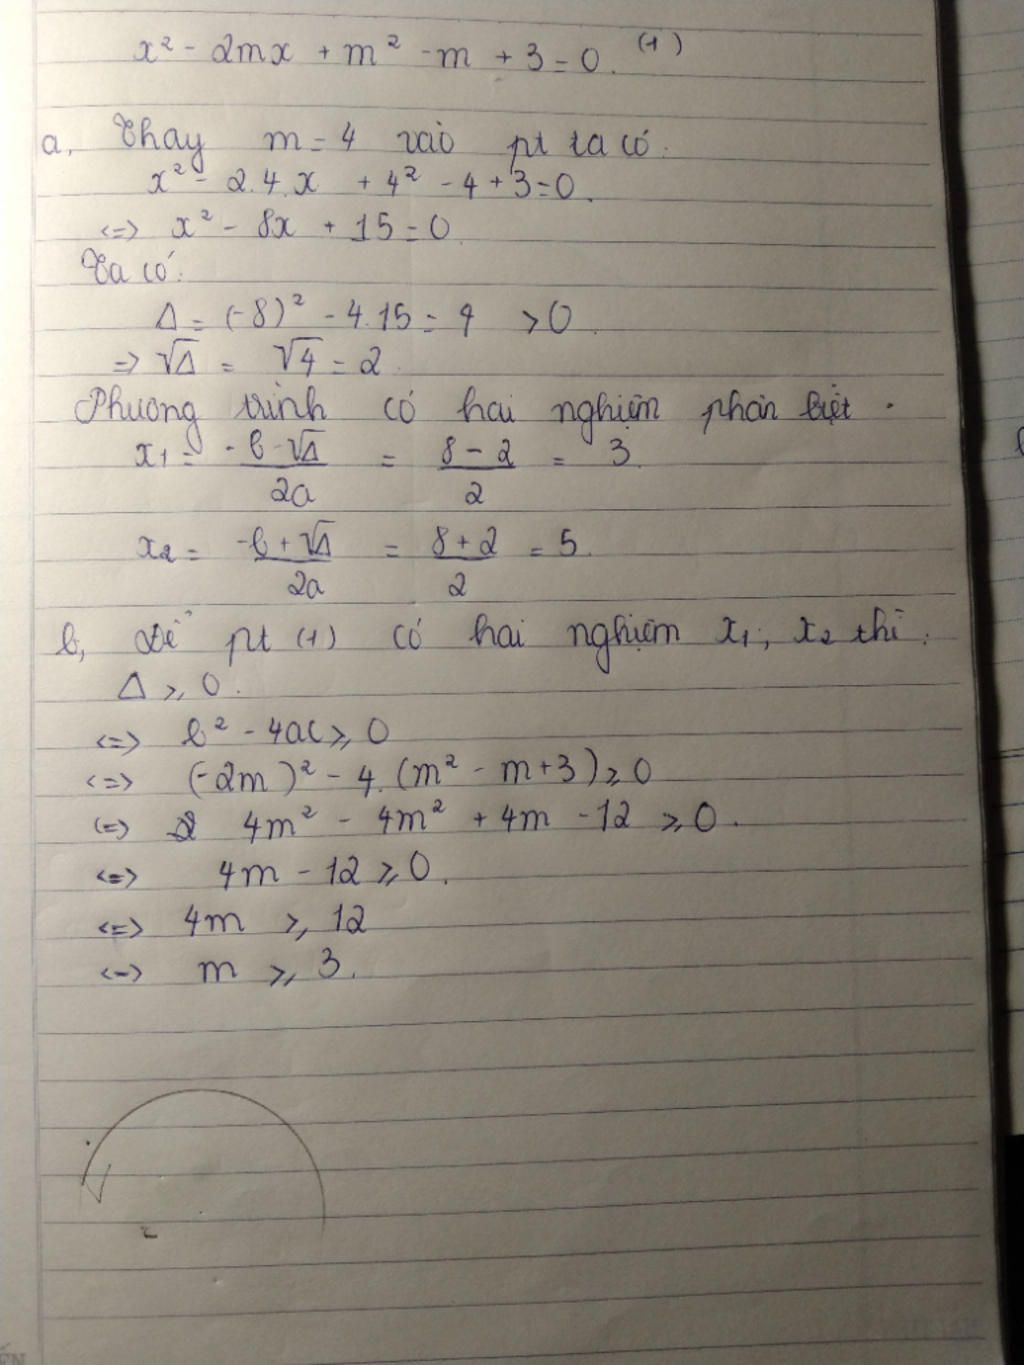 x² - 2mx + m² - m + 3 = 0. (1)
a, Thay m = 4 vào pt ta có.
x² - 2.4.x + 4² - 4 + 3 = 0.
<=> x² - 8x + 15 = 0
Ta có:
Δ = (-8)² - 4.15 = 4 > 0.
=> √Δ = √4 = 2
Phương trình có hai nghiệm phân biệt.
x₁ = -b - √Δ / 2a = 8 - 2 / 2 = 3.
x₂ = -b + √Δ / 2a = 8 + 2 / 2 = 5.
b, Để pt (1) có hai nghiệm x₁; x₂ thì:
Δ ≥ 0.
<=> b² - 4ac ≥ 0
<=> (-2m)² - 4.(m² - m + 3) ≥ 0
<=> 4m² - 4m² + 4m - 12 ≥ 0.
<=> 4m - 12 ≥ 0.
<=> 4m ≥ 12
<=> m ≥ 3.